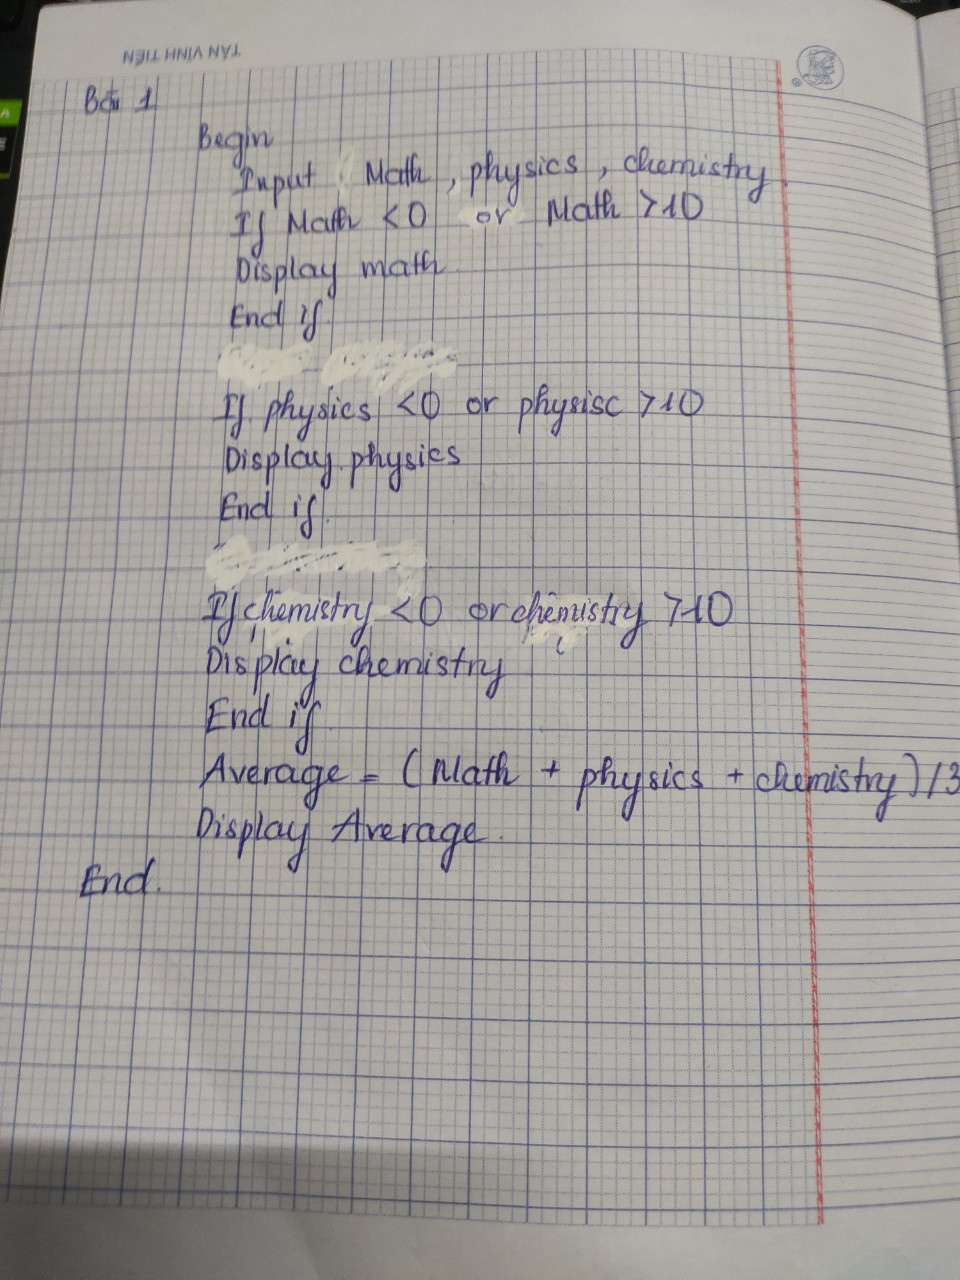 TÂN VĨNH TIẾN
Bài 1
Begin
Input Math, physics, chemistry
If Math <0 or Math >10
Display math
End if
If physics <0 or physisc >10
Display physics
End if
If chemistry <0 or chemistry >10
Display chemistry
End if
Average = (Math + physics + chemistry)/3
Display Average.
End.